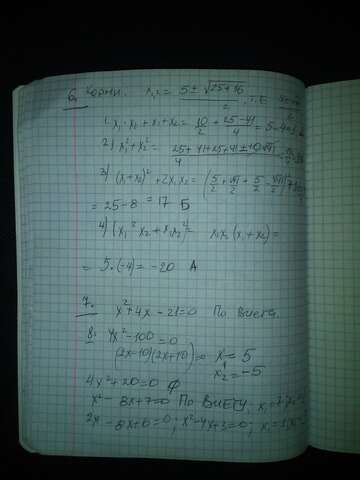 6. Корни. x₁,₂ = (5 ± √(25+16))/2, т.е.
1. x₁·x₂ + x₁+x₂ = 10/2 + (25-41)/4 = 5-4=1
2) x₁²+x₂² = (25+41+25+41±10√41)/4
3) (x₁+x₂)² + 2x₁x₂ = (5/2 + √41/2 + 5/2 - √41/2)²
= 25-8 = 17 Б
4) (x₁²x₂ + x₁x₂²) = x₁x₂(x₁+x₂) =
= 5·(-4) = -20 А
7. x²+4x-21=0 По Виета.
8. 4x²-100=0
(2x-10)(2x+10)=0 x₁=5
x₂=-5
4x²+20=0 ∅
x²-8x+7=0 По Виету, x₁=7
2x²-8x+6=0; x²-4x+3=0; x₁=3